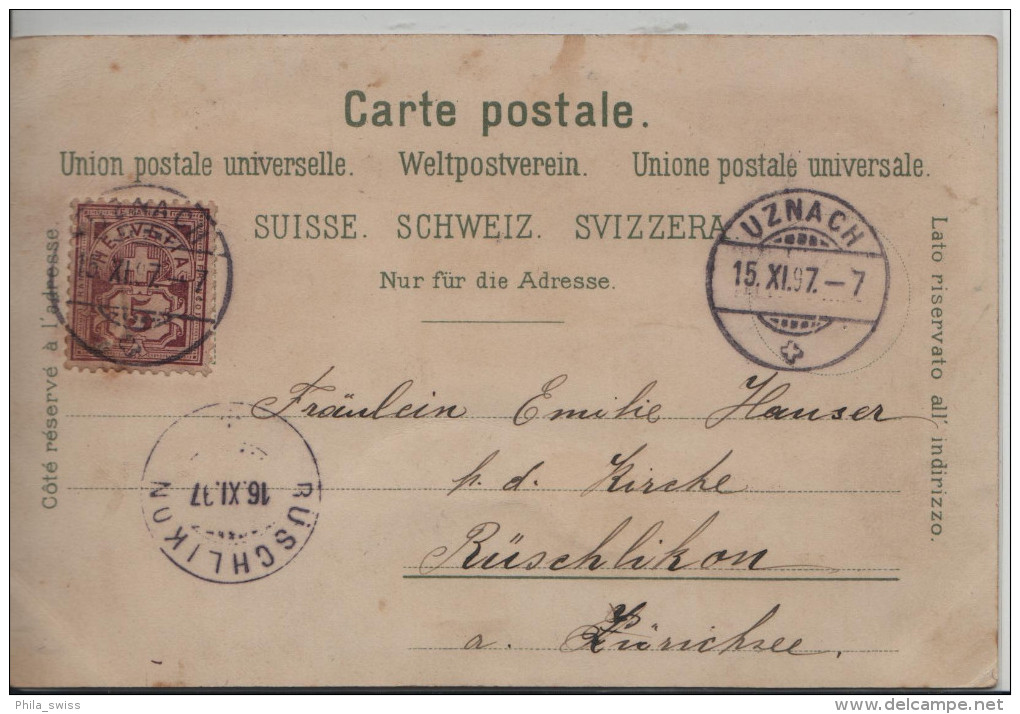 Carte postale.
Union postale universelle. Weltpostverein. Unione postale universale.
SUISSE. SCHWEIZ. SVIZZERA
Nur für die Adresse.
Côté réservé à l'adresse.
Lato riservato all' indirizzo.
HELVETIA
15
XI.97.-7
UZNACH
15.XI.97.-7
RÜSCHLIKON
16.XI.97
Fräulein Emilie Hauser
b. d. Kirche
Rüschlikon
a. Zürichsee.
Phila_swiss
www.delcampe.net